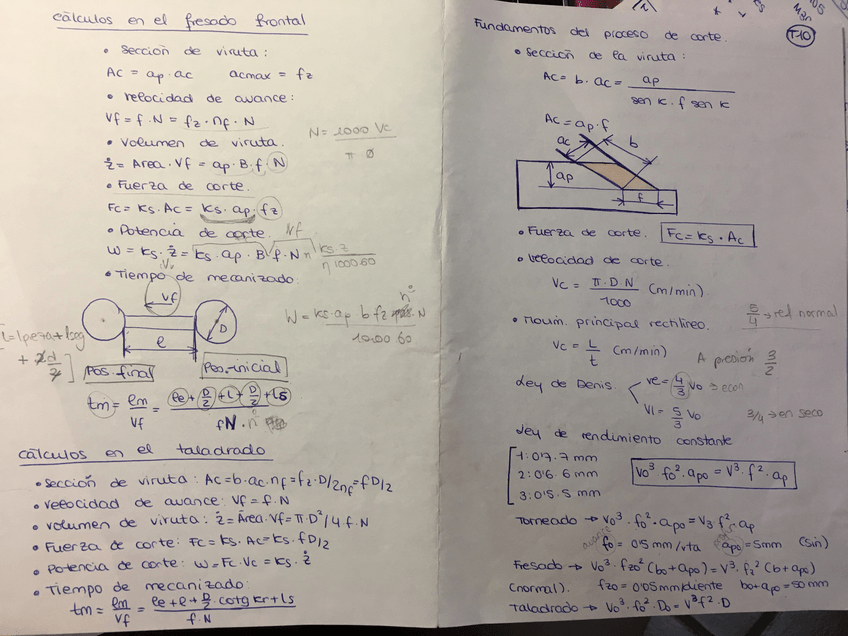 cálculos en el fresado frontal
• sección de viruta:
Ac = ap·ac   acmax = fz
• velocidad de avance:
Vf = f·N = fz·nf·N
• Volumen de viruta.
ż = Area·Vf = ap·B·f·N
N = 1000 Vc / π Ø
• Fuerza de corte.
Fc = Ks·Ac = Ks·ap·fz
• Potencia de corte. Vf
W = Ks·ż = Ks·ap·B f·N n ks·z / η 1000·60
• Tiempo de mecanizado.
Vf
D
e
W = ks·ap·b fz n° N / 1000 60
Pos. final
Pos. inicial
tm = lm / Vf = le + D/2 + L + D/2 + Ls / fN·n°
cálculos en el taladrado
• sección de viruta: Ac = b·ac·nf = fz·D/2nf = fD/2
• velocidad de avance: Vf = f·N
• volumen de viruta: ż = Area·Vf = π·D²/4·f·N
• Fuerza de corte: Fc = Ks·Ac = Ks·fD/2
• Potencia de corte: W = Fc·Vc = Ks·ż
• Tiempo de mecanizado:
tm = lm / Vf = le + l + D/2·cotg kr + ls / f·N
Fundamentos del proceso de corte.
T-10
• sección de la viruta:
Ac = b·ac = ap / sen K·f sen K
Ac = ap·f
ac
b
ap
f
• Fuerza de corte. Fc = Ks·Ac
• velocidad de corte.
Vc = π·D·N / 1000 (m/min)
5/4 → ref normal
• Movim. principal rectilíneo.
Vc = L / t (m/min)
A presión 3/2
Ley de Denis. ve = 4/3 Vo → econ
Vl = 5/3 Vo
3/4 → en seco
Ley de rendimiento constante
1: 0'7. 7 mm
2: 0'6. 6 mm
3: 0'5. 5 mm
Vo³ fo²·apo = V³·f²·ap
Torneado → Vo³·fo²·apo = V3·f²·ap
fo = 0'5 mm/vta   apo = 5mm (sin)
Fresado → Vo³·fzo² (bo+apo) = V³·fz² (b+ap)
(normal). fzo = 0'05 mm/diente   bo+apo = 50 mm
Taladrado → Vo³·fo²·Do = V³f²·D